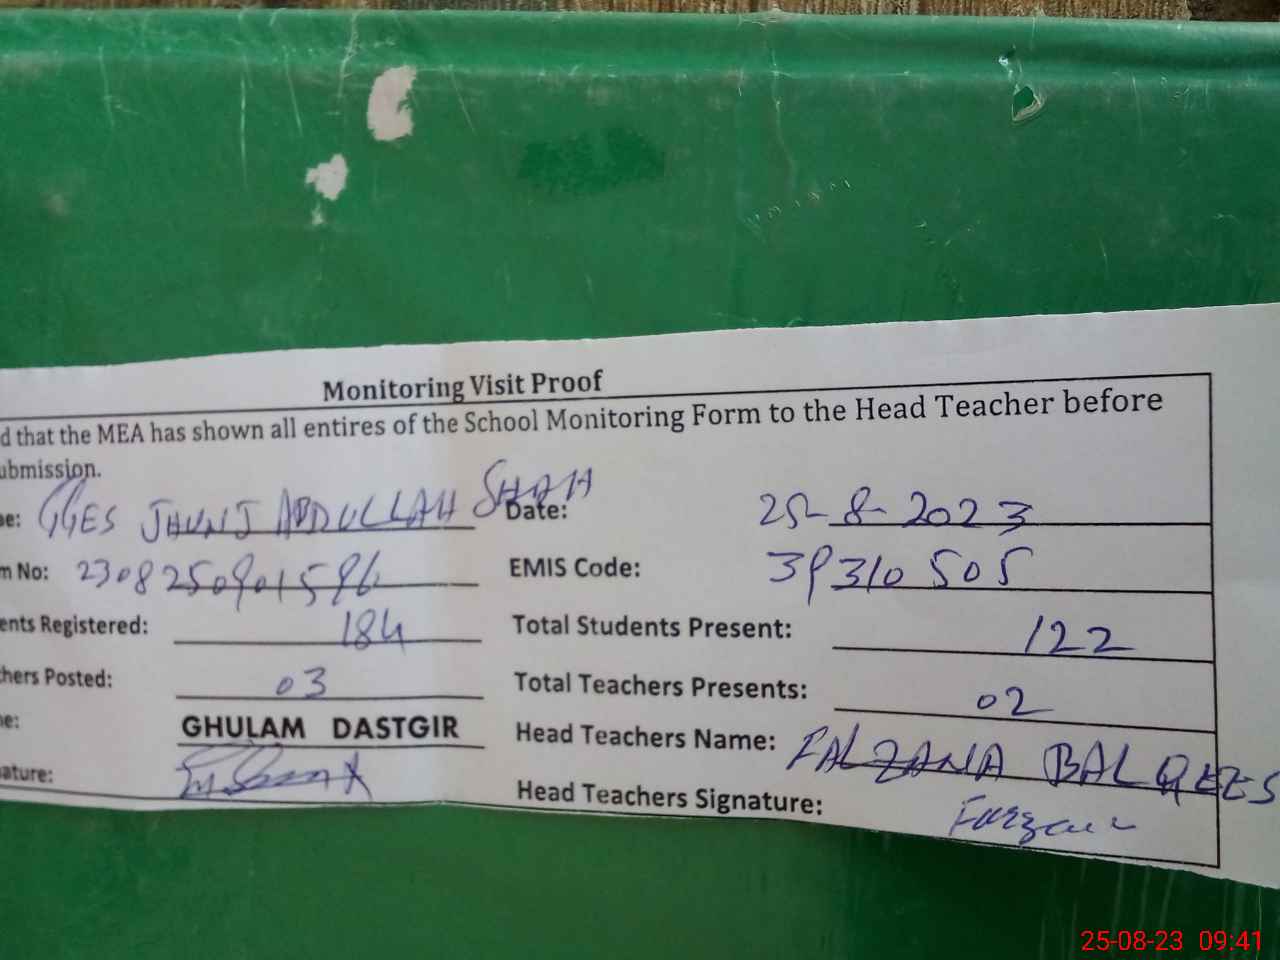 Monitoring Visit Proof
d that the MEA has shown all entires of the School Monitoring Form to the Head Teacher before
ubmission.
e: GGES JHUNJ ABDULLAH SHAH Date: 25-8-2023
m No: 2308250901596 EMIS Code: 39310505
ents Registered: 184 Total Students Present: 122
hers Posted: 03 Total Teachers Presents: 02
e: GHULAM DASTGIR Head Teachers Name: FALZANA BALQEES
ature: Head Teachers Signature: Farzana
25-08-23 09:41